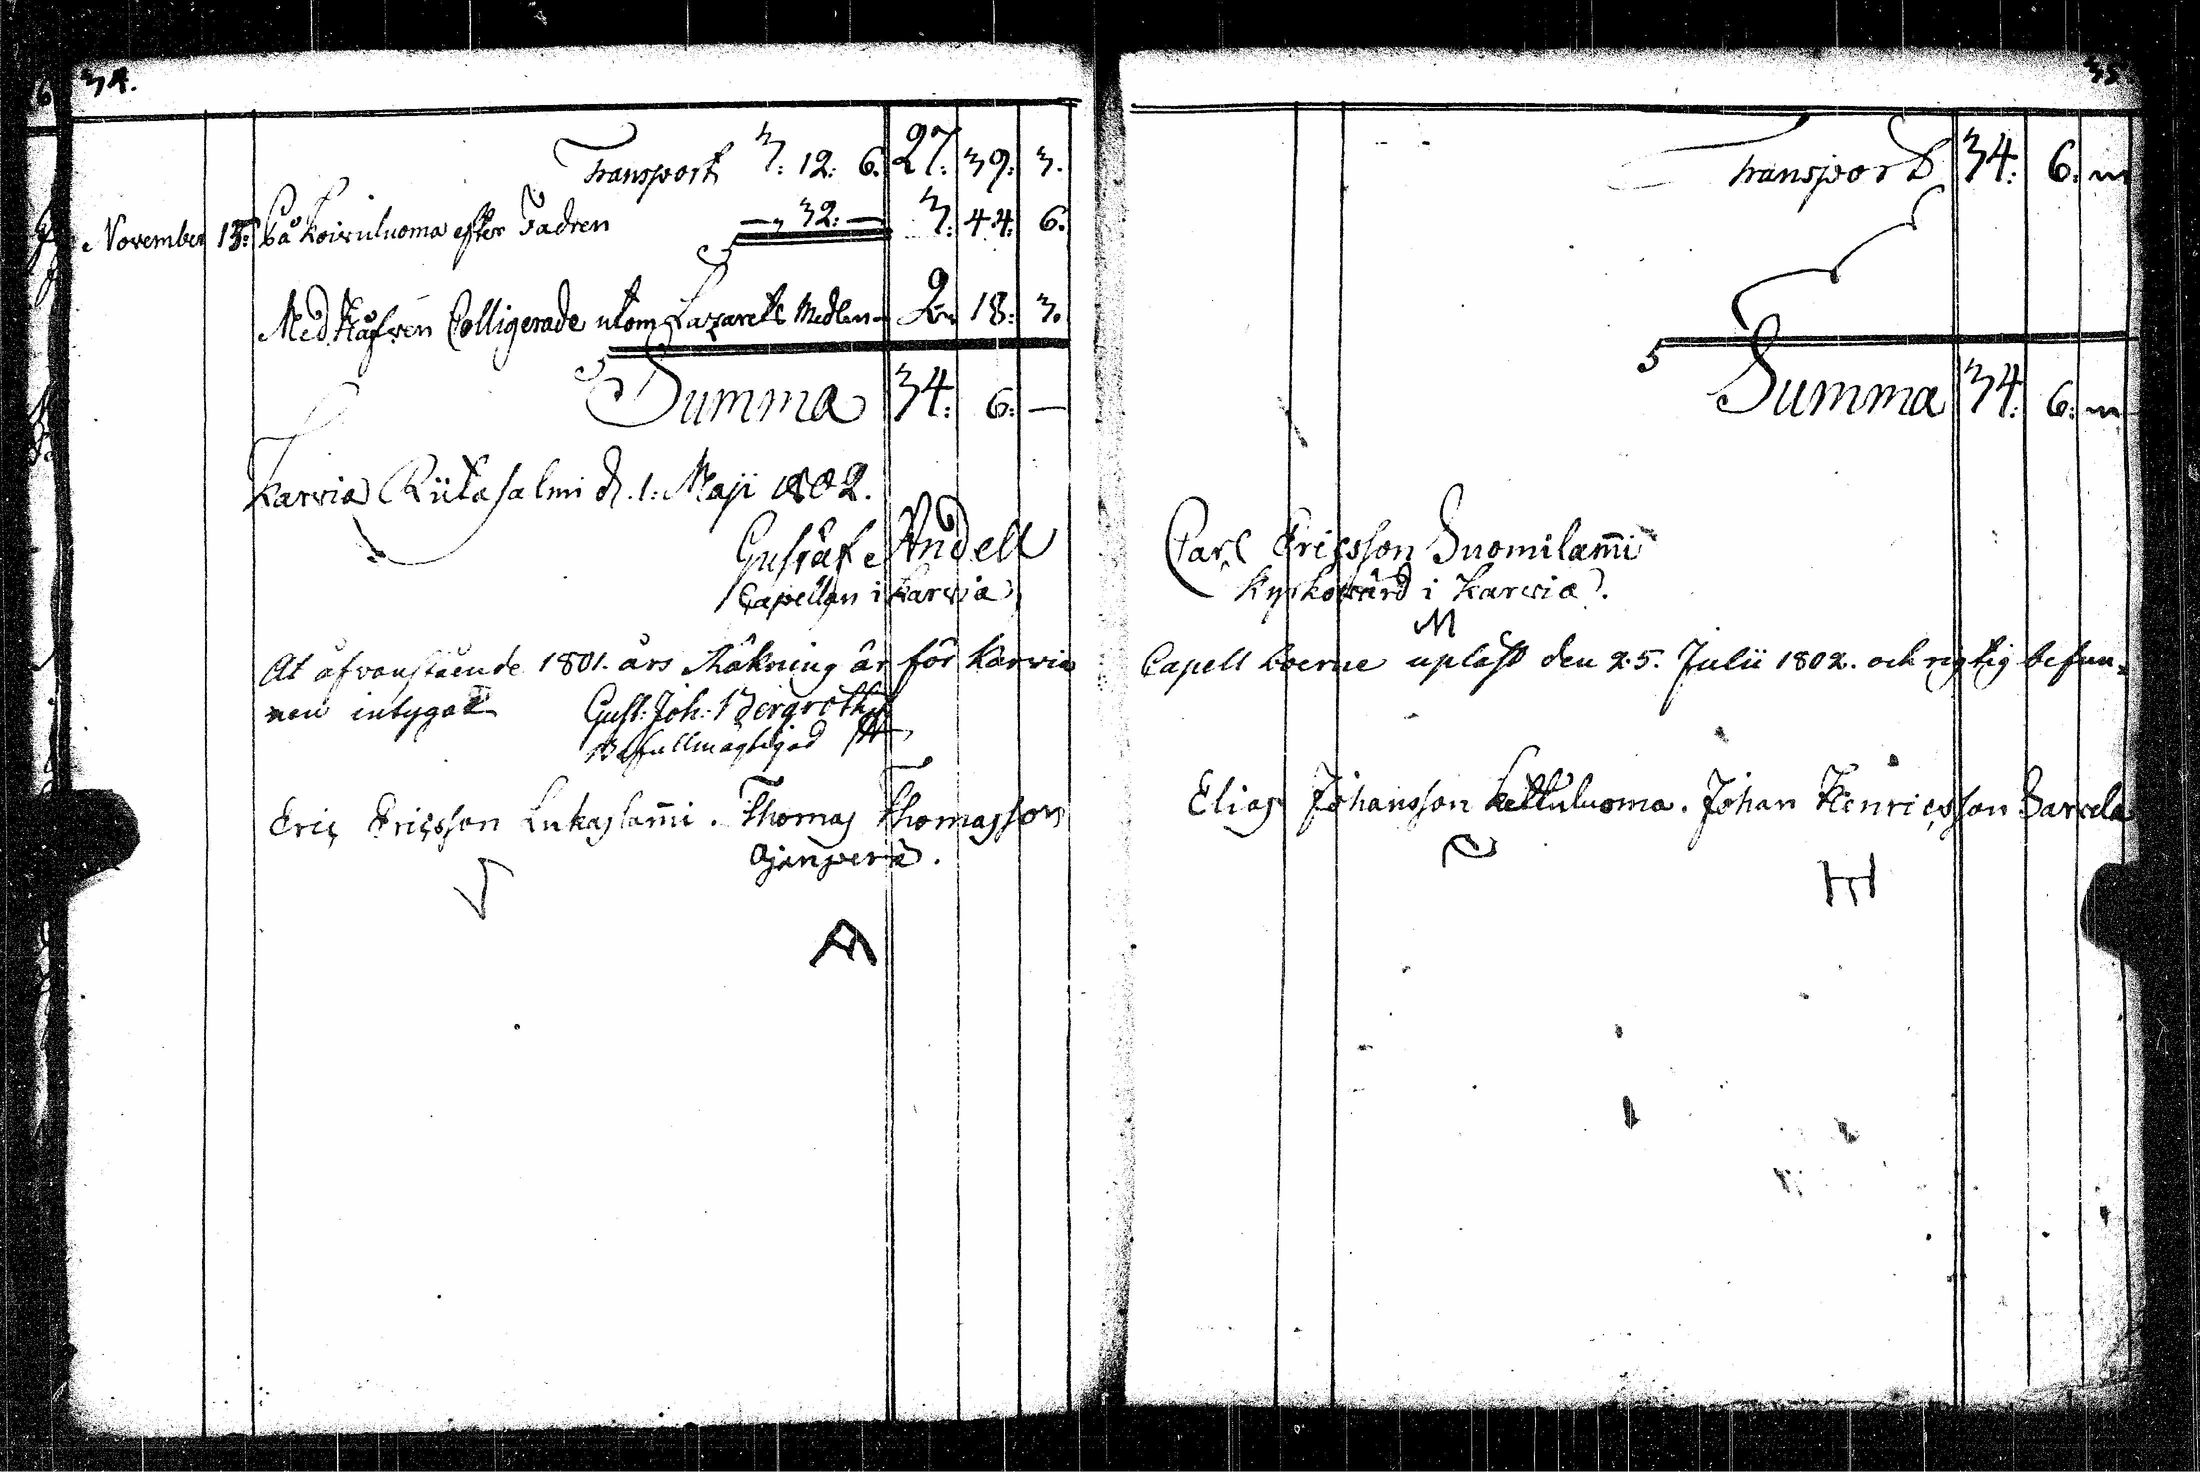 34.
Transport 3: 12: 6. 27: 39: 3.
November 15: På Koivuluoma efter Fadren — „ 32: — 3: 44: 6.
Med Håfven Colligerade utom Lazarets Medlen 2: 18: 3.
Summa 34: 6: —
Karvia Riitasalmi d. 1: Maji 1802.
Gustaf Andell
Capellan i Karvia
At åfvanstående 1801. års Räkning är för Karvia
nen intygar Gust: Joh: Bergroth
Befullmägtigad
Eric Ericsson Lukaslam̄i. Thomas Thomasson
Ojanperä.
35
Transport 34: 6: „
Summa 34: 6: „
Carl Ericsson Suomilam̄i
Kyrkovärd i Karvia.
M
Capell boerne upläst den 25. Julii 1802. och rigtig befun-
Elias Johansson Kettuluoma. Johan Henricsson Sarvela